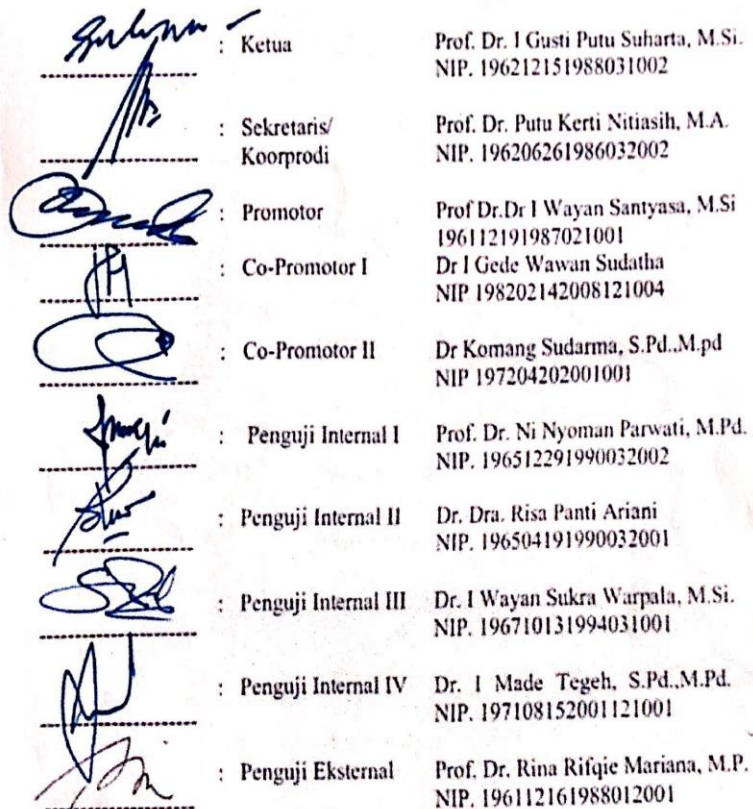 : Ketua Prof. Dr. I Gusti Putu Suharta, M.Si.
NIP. 196212151988031002
: Sekretaris/ Prof. Dr. Putu Kerti Nitiasih, M.A.
Koorprodi NIP. 196206261986032002
: Promotor Prof Dr.Dr I Wayan Santyasa, M.Si
196112191987021001
: Co-Promotor I Dr I Gede Wawan Sudatha
NIP 198202142008121004
: Co-Promotor II Dr Komang Sudarma, S.Pd.,M.pd
NIP 197204202001001
: Penguji Internal I Prof. Dr. Ni Nyoman Parwati, M.Pd.
NIP. 196512291990032002
: Penguji Internal II Dr. Dra. Risa Panti Ariani
NIP. 196504191990032001
: Penguji Internal III Dr. I Wayan Sukra Warpala, M.Si.
NIP. 196710131994031001
: Penguji Internal IV Dr. I Made Tegeh, S.Pd.,M.Pd.
NIP. 197108152001121001
: Penguji Eksternal Prof. Dr. Rina Rifqie Mariana, M.P.
NIP. 196112161988012001